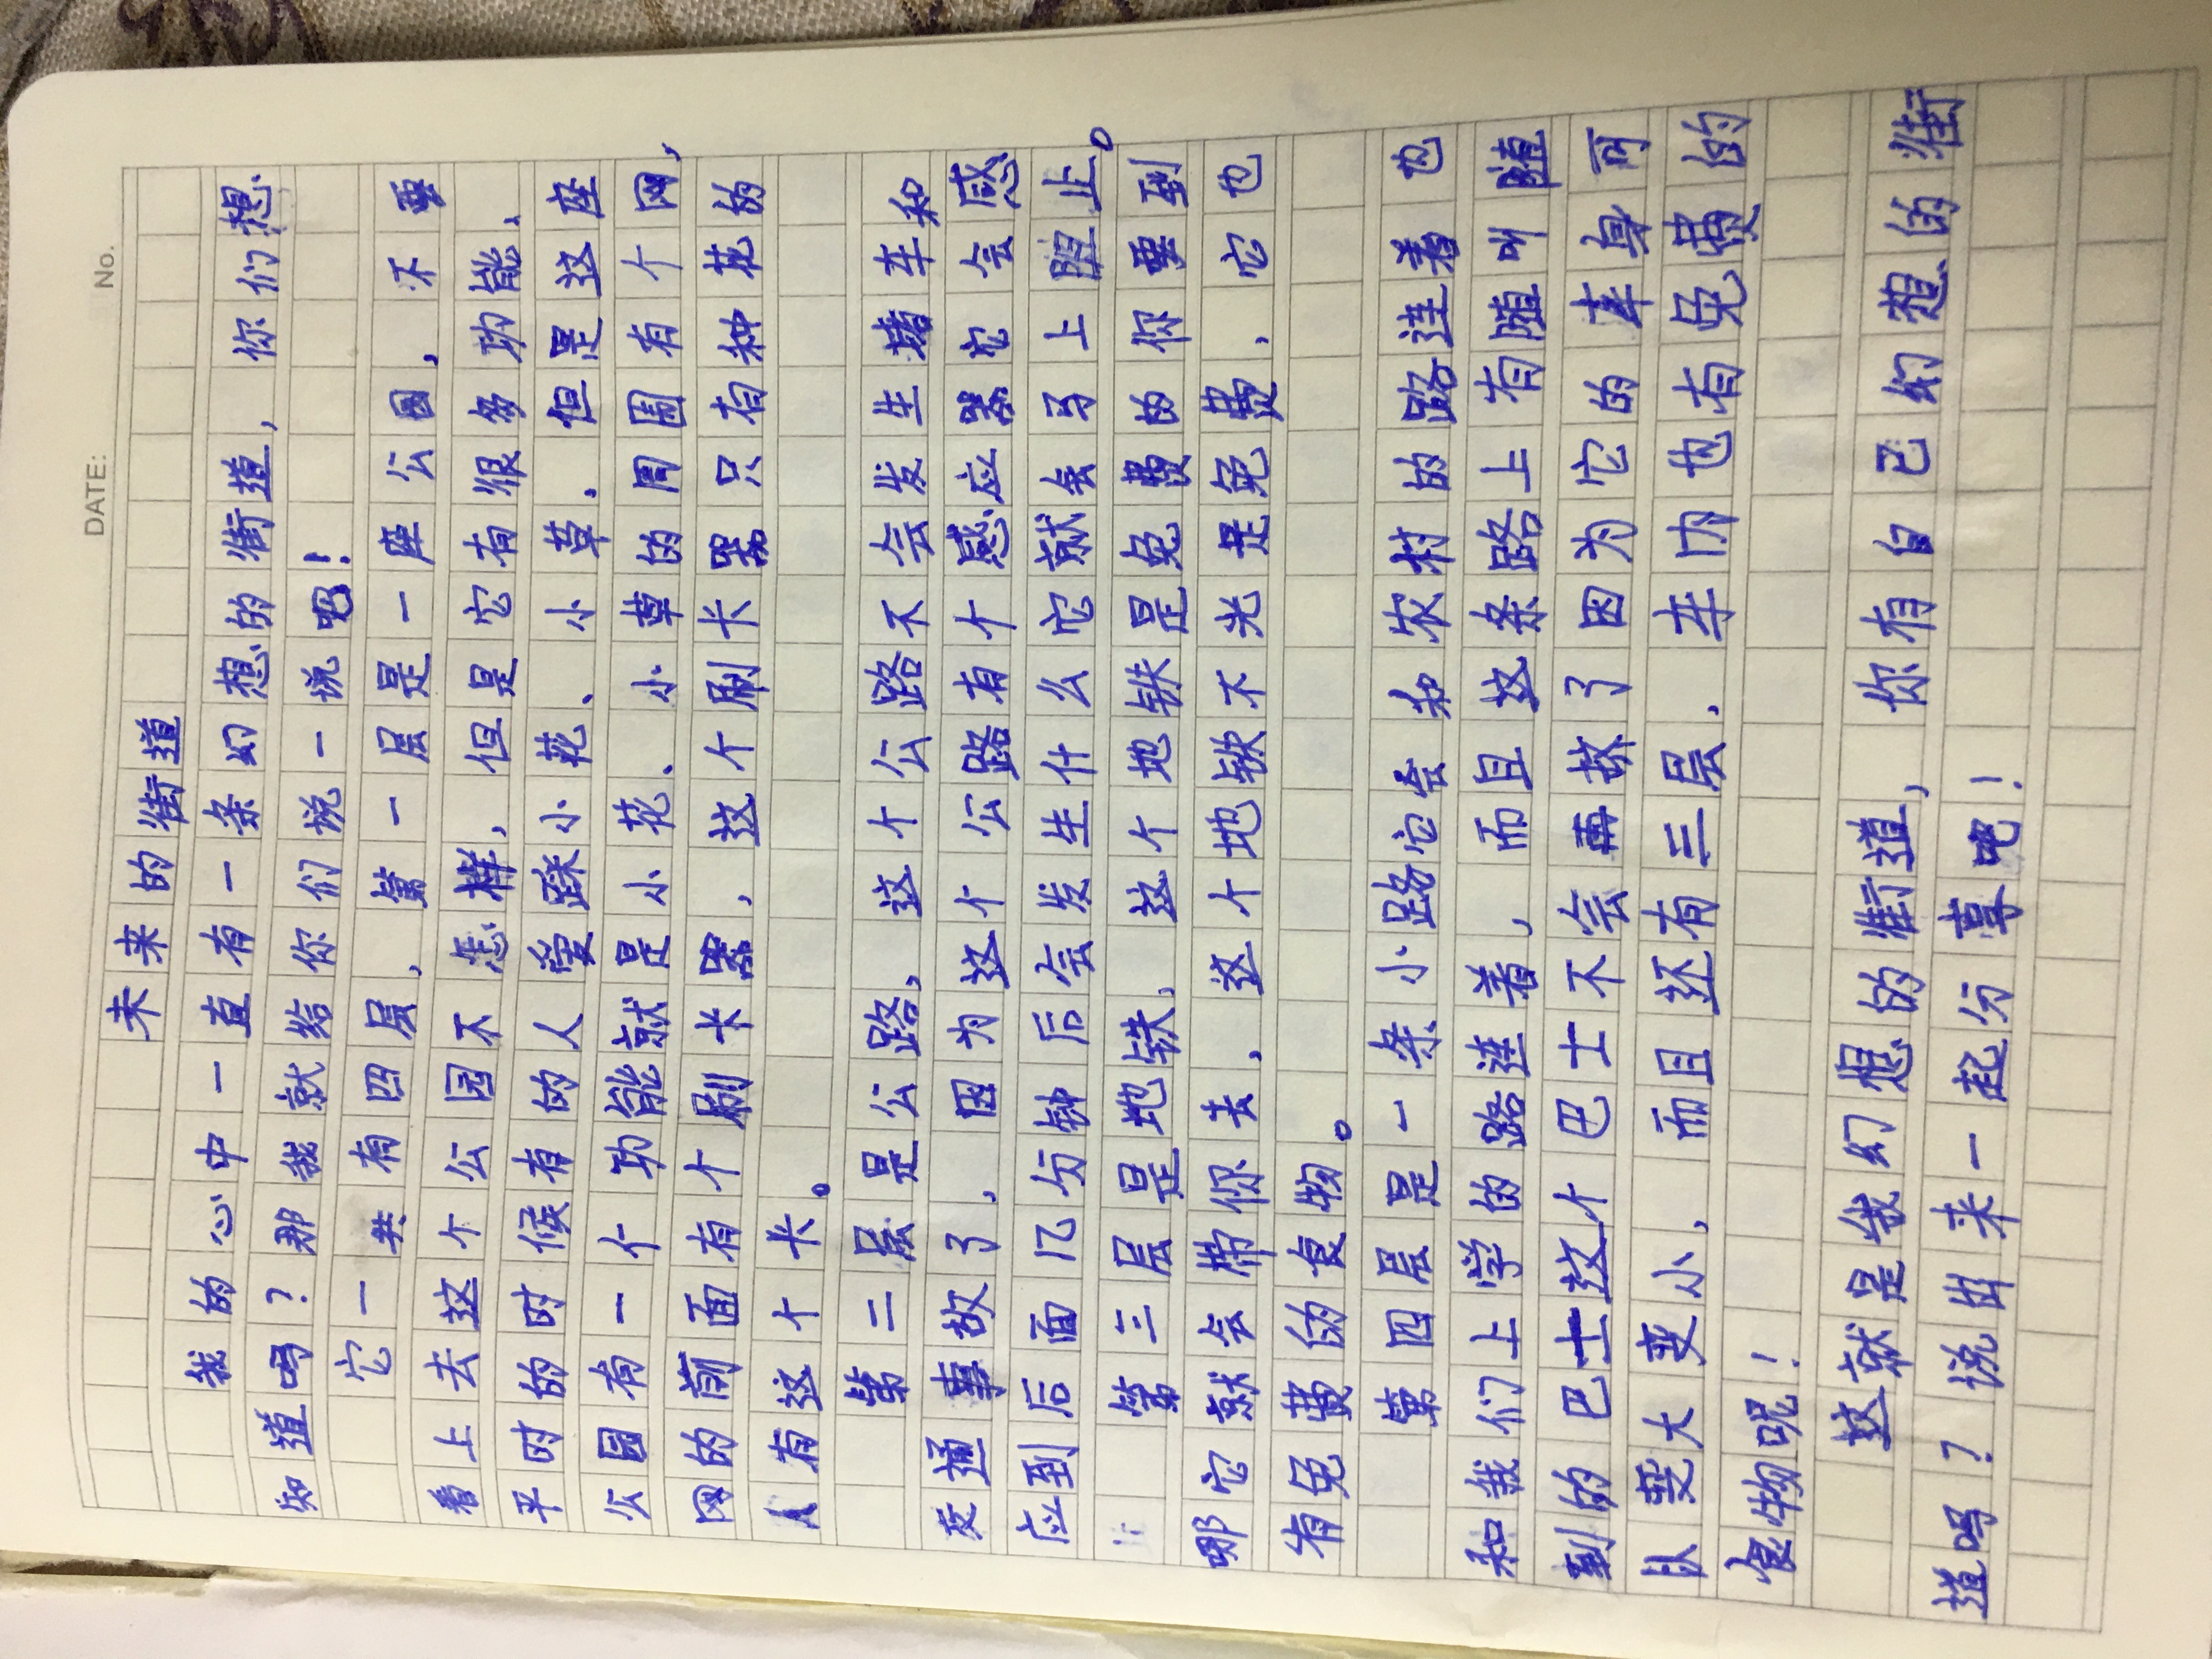 DATE: No.
未来的街道
我的心中一直有一条幻想的街道，你们想
知道吗？那我就给你们说一说吧！
它一共有四层，第一层是一座公园，不要
看上去这个公园不怎样，但是它有很多功能，
平时的时候有的人爱踩小花、小草，但是这座
公园有一个功能就是小花、小草的周围有个网，
网的前面有个刷卡器，这个刷卡器只有种花的
人有这个卡。
第二层是公路，这个公路不会发生堵车和
交通事故了，因为这个公路有个感应器它会感
应到后面几分钟后会发生什么它就会马上阻止。
第三层是地铁，这个地铁是免费的你要到
哪它就会带你去，这个地铁不光是免费，它也
有免费的食物。
第四层是一条小路它会和农村的路连着也
和我们上学的路连着，而且这条路上有随叫随
到的巴士这个巴士不会再挤了因为它的车身可
以变大变小，而且还有三层，车内也有免费的
食物呢！
这就是我幻想的街道，你有自己幻想的街
道吗？说出来一起分享吧！